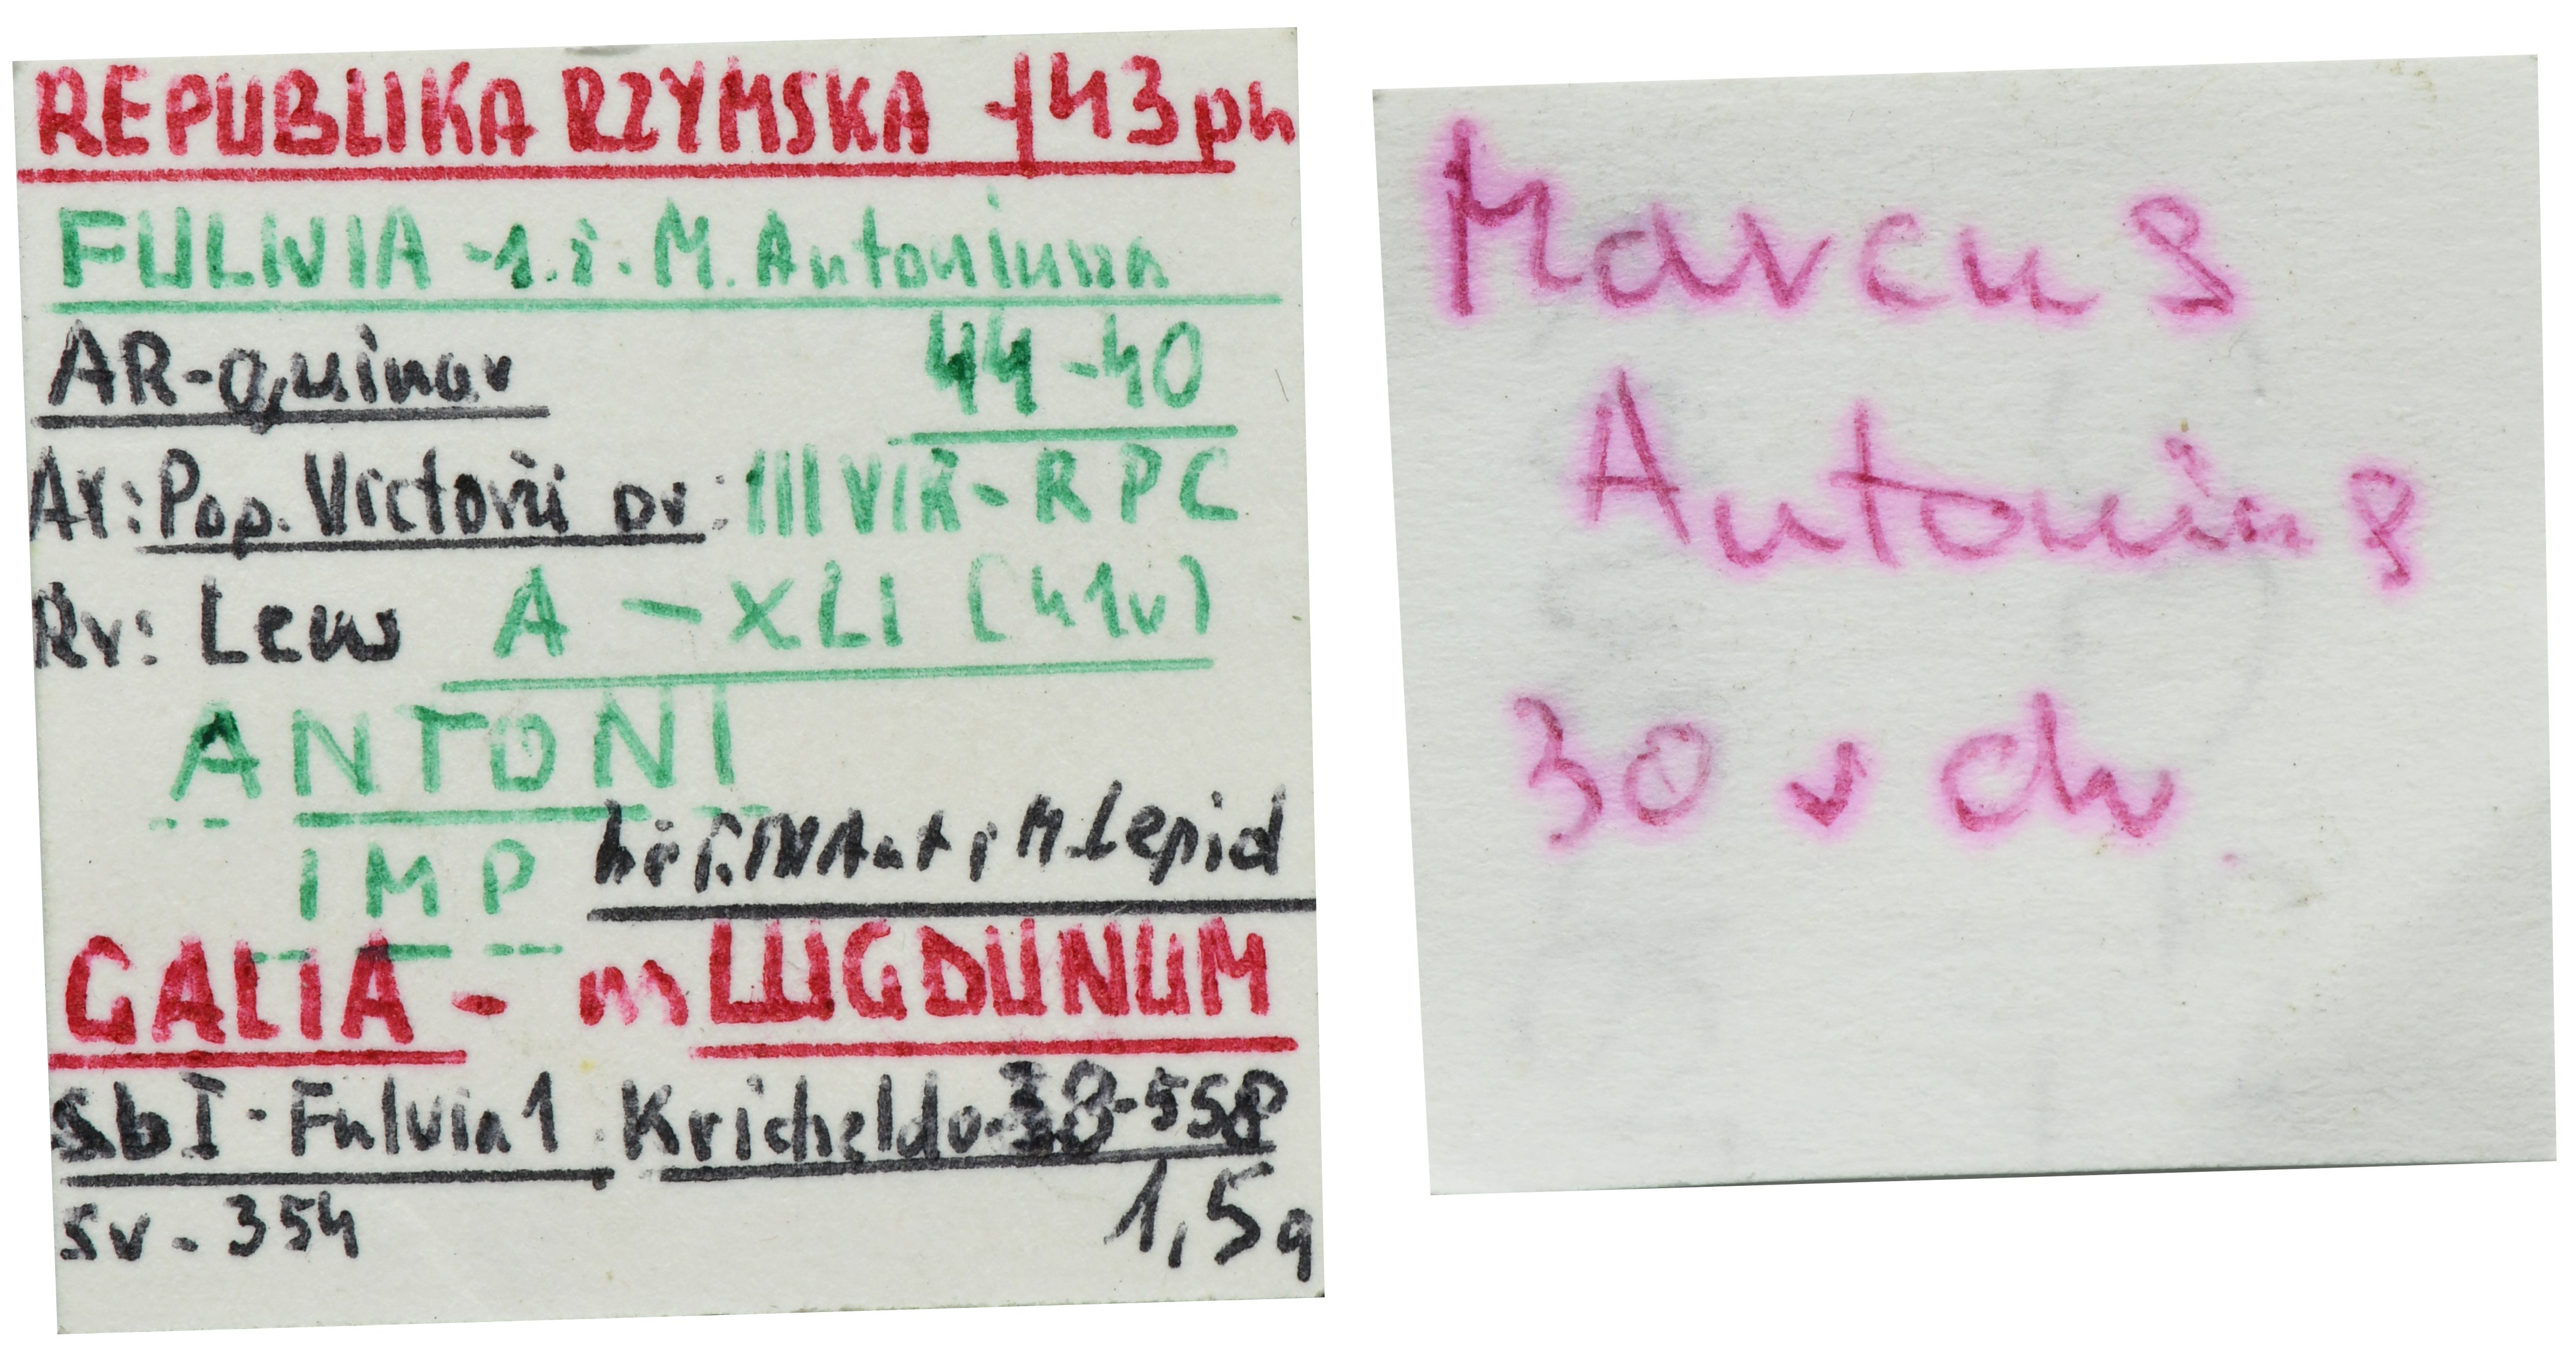 REPUBLIKA RZYMSKA - 143 ph
FULVIA - 1.ż. M. Antoniusza
AR-quinar 44-40
Av: Pop. Victorii pr: III VIR - R P C
Rv: Lew A - XLI (41r)
ANTONI
IMP M. Lepid
GALIA - m LUGDUNUM
SbI - Fulvia 1 Kricheldo-38-558
Sv - 354 1,5g
Marcus
Antonius
30 r ch.